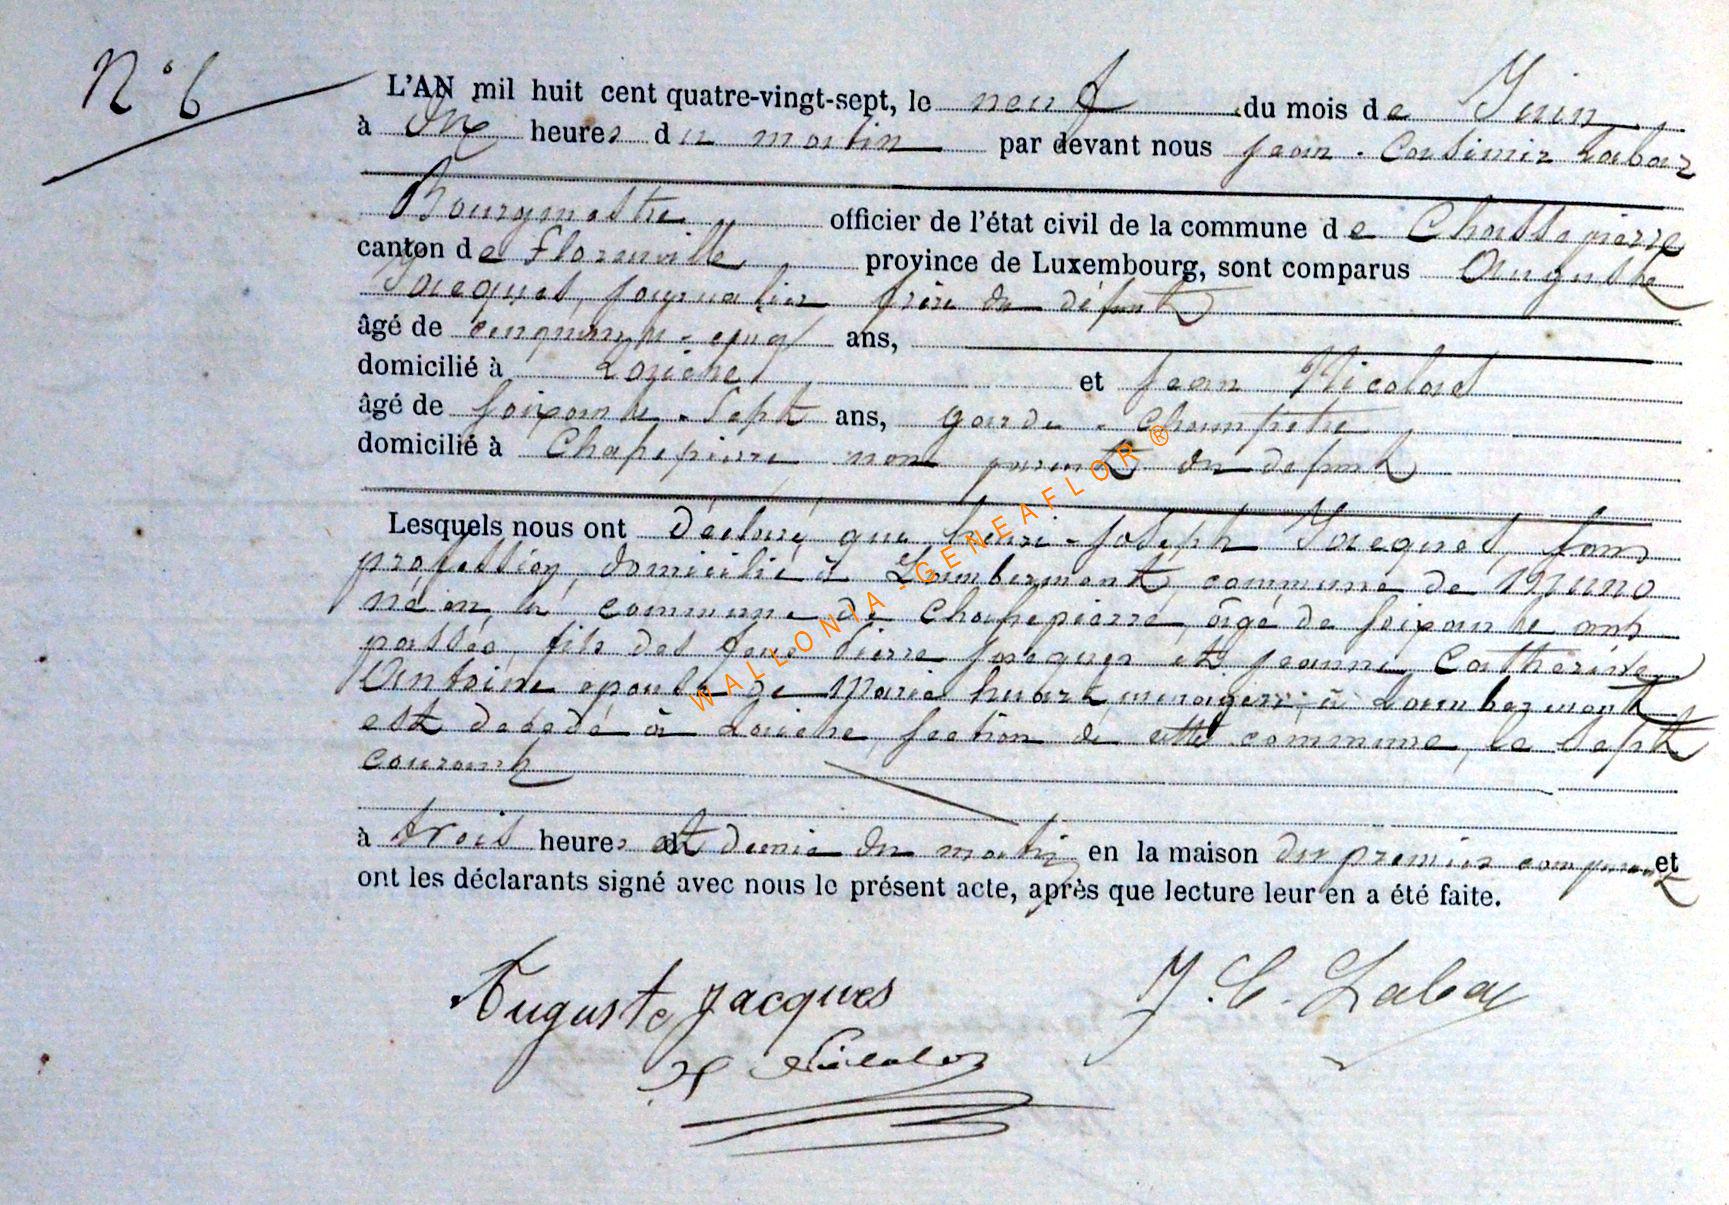 N° 6
L'AN mil huit cent quatre-vingt-sept, le neuf du mois de Juin
à dix heures du matin par devant nous Jean-Casimir Labar
Bourgmestre officier de l'état civil de la commune de Chassepierre
canton de Florenville province de Luxembourg, sont comparus Auguste
Jacques, journalier frère du défunt
âgé de cinquante-cinq ans,
domicilié à Laiche et Jean Nicolas
âgé de soixante-sept ans, garde-champêtre
domicilié à Chassepierre non parent du défunt
Lesquels nous ont déclaré que henri-Joseph Jacques, sans
profession, domicilié à Lambermont, commune de Muno
né en la commune de Chassepierre, âgé de soixante ans
passés, fils des feus Pierre Jacques et Jeanne Catherine
Antoine époux de Marie huart, ménagère, à Lambermont
est décédé à Laiche, section de cette commune, le sept
courant
à trois heures et demie du matin en la maison du premier comparant et
ont les déclarants signé avec nous le présent acte, après que lecture leur en a été faite.
Auguste Jacques J. C. Labar
Nicolas
WALLONIA-GENEAFLOR ®